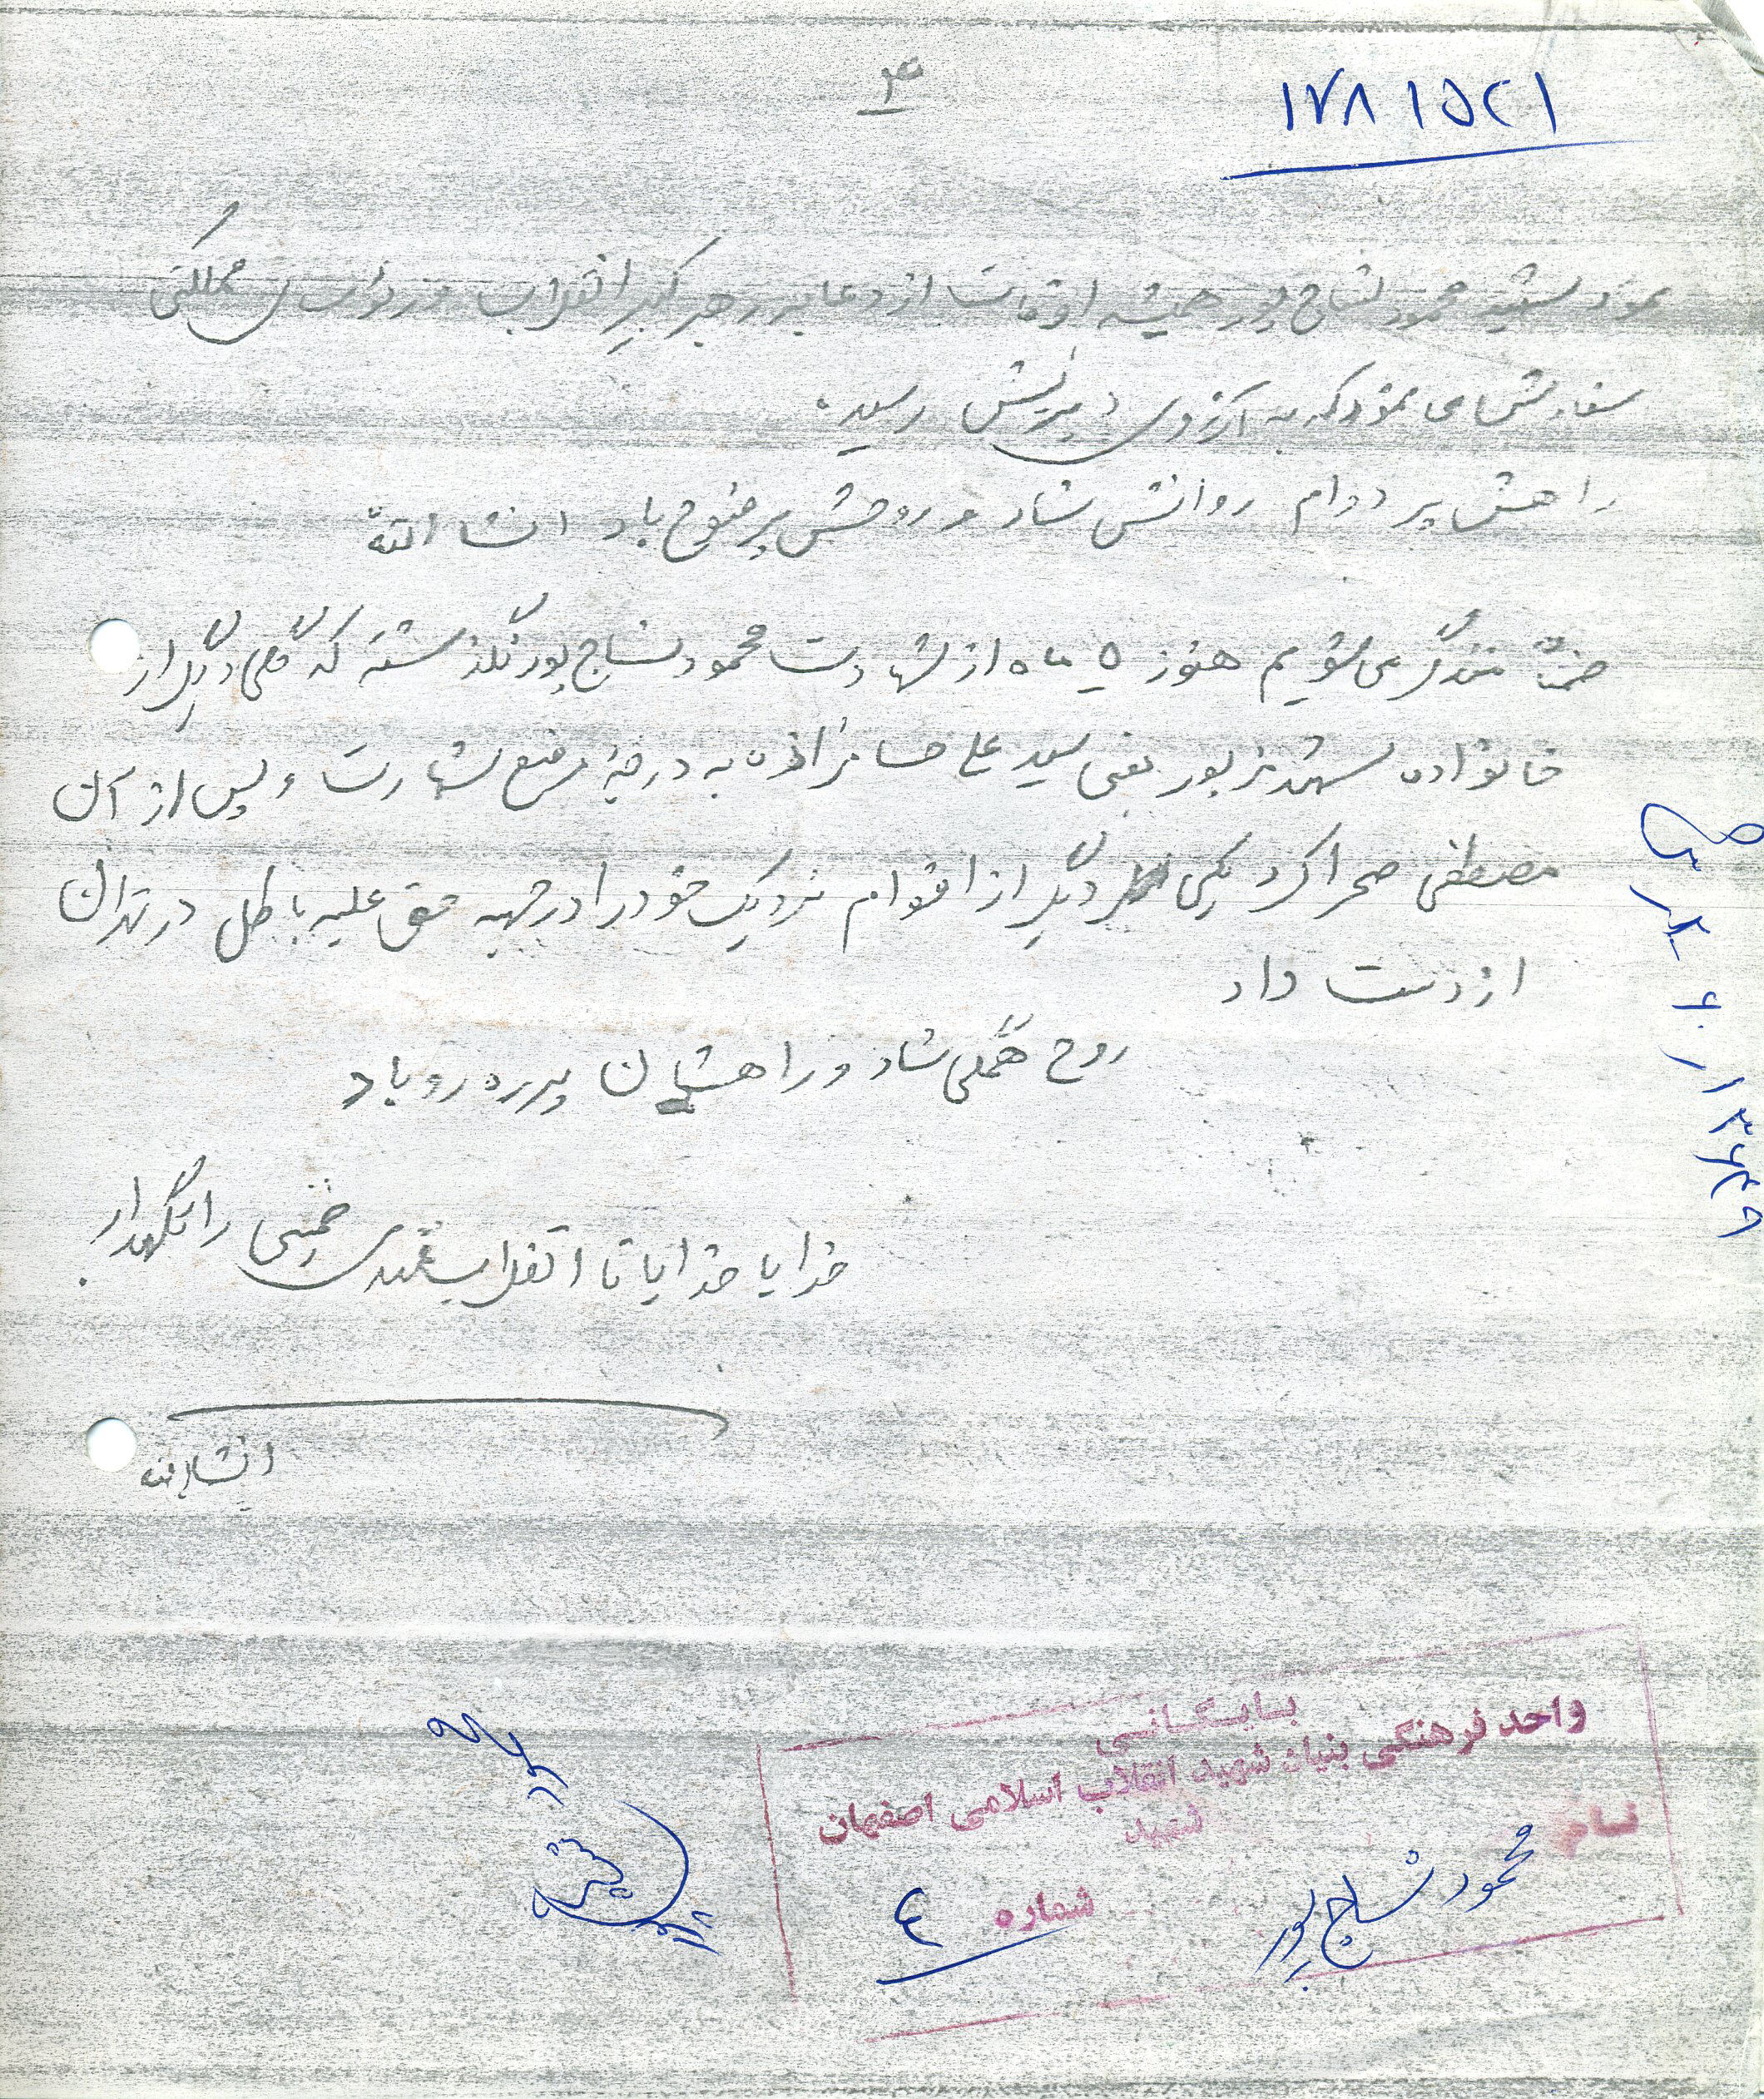 ۱۷۸۱۵۲۱
۴
نمود شهید محمود نساج پور همیشه اوقات از دعا بر رهبر کبیر انقلاب و رئوسای مملکتی
سفارش می نمود که به آرزوی دیرینش رسید.
راهش پر دوام روانش شاد و روحش پر فتوح باد انشاالله
ضمناً متذکر می شویم هنوز ۵ ماه از شهادت محمود نساج پور نگذشته که گلی دیگر از
خانواده شهید نزبور یعنی سید علی حسامزاده به درجۀ رفیع شهادت و پس از آن
مصطفی صحراگرد یکی دیگر از اقوام نزدیک خود را در جبهه حق علیه باطل در تهران
از دست داد
روح همگی شاد و راهشان پر ره رو باد
خدایا خدایا تا انقلاب مهدی خمینی را نگهدار
انشاالله
بایگانی
واحد فرهنگی بنیاد شهید انقلاب اسلامی اصفهان
نام شهید
محمود نساج پور
شماره ٤